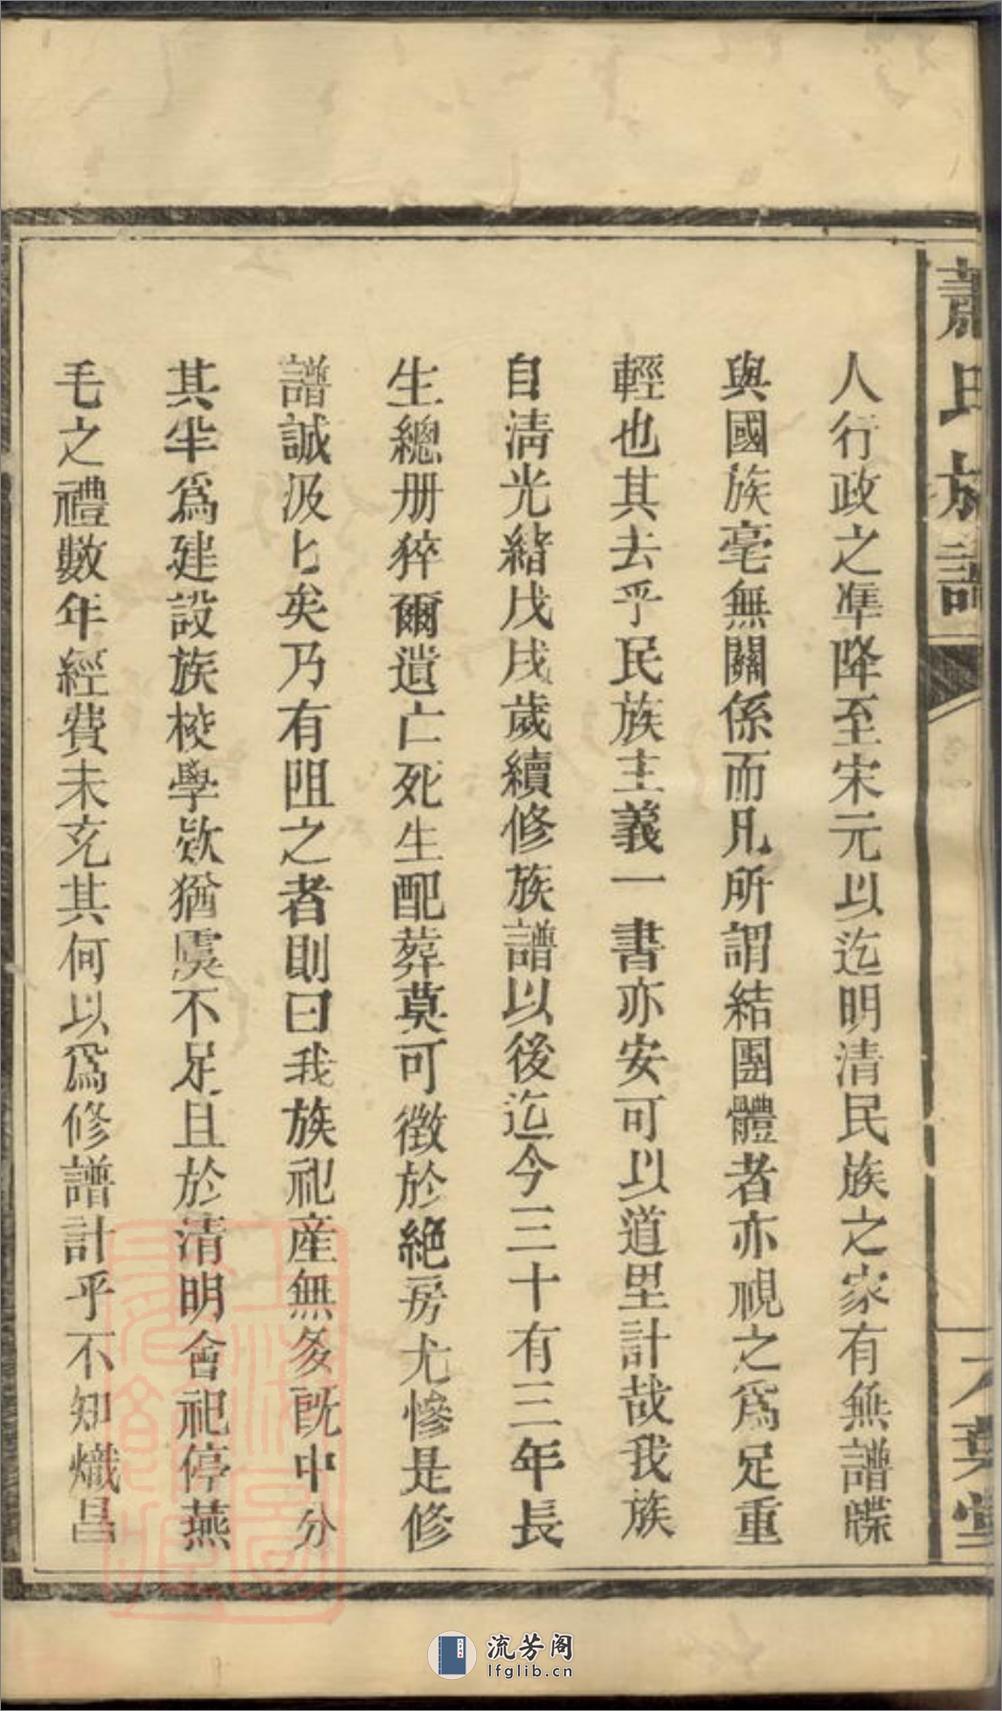 蕭氏族譜
八葉堂
人行政之準降至宋元以迄明清民族之家有無譜牒
與國族毫無關係而凡所謂結團體者亦視之爲足重
輕也其去乎民族主義一書亦安可以道里計哉我族
自清光緒戊戌歲續修族譜以後迄今三十有三年長
生總册猝爾遺亡死生配葬莫可徵於絕房尤慘是修
譜誠汲匕矣乃有阻之者則曰我族祀産無多既中分
其半爲建設族校學欵猶虞不足且於清明會祀停燕
毛之禮數年經費未充其何以爲修譜計乎不知熾昌
流芳阁
lfglib.cn